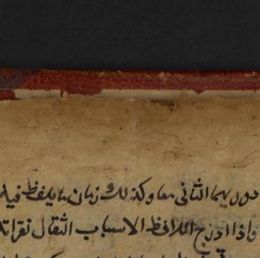 دون يهما الثاني معا وكذلك زمان ما يلفظ فيه
واذا ادرج اللافظ الاسباب الثقال نقرات